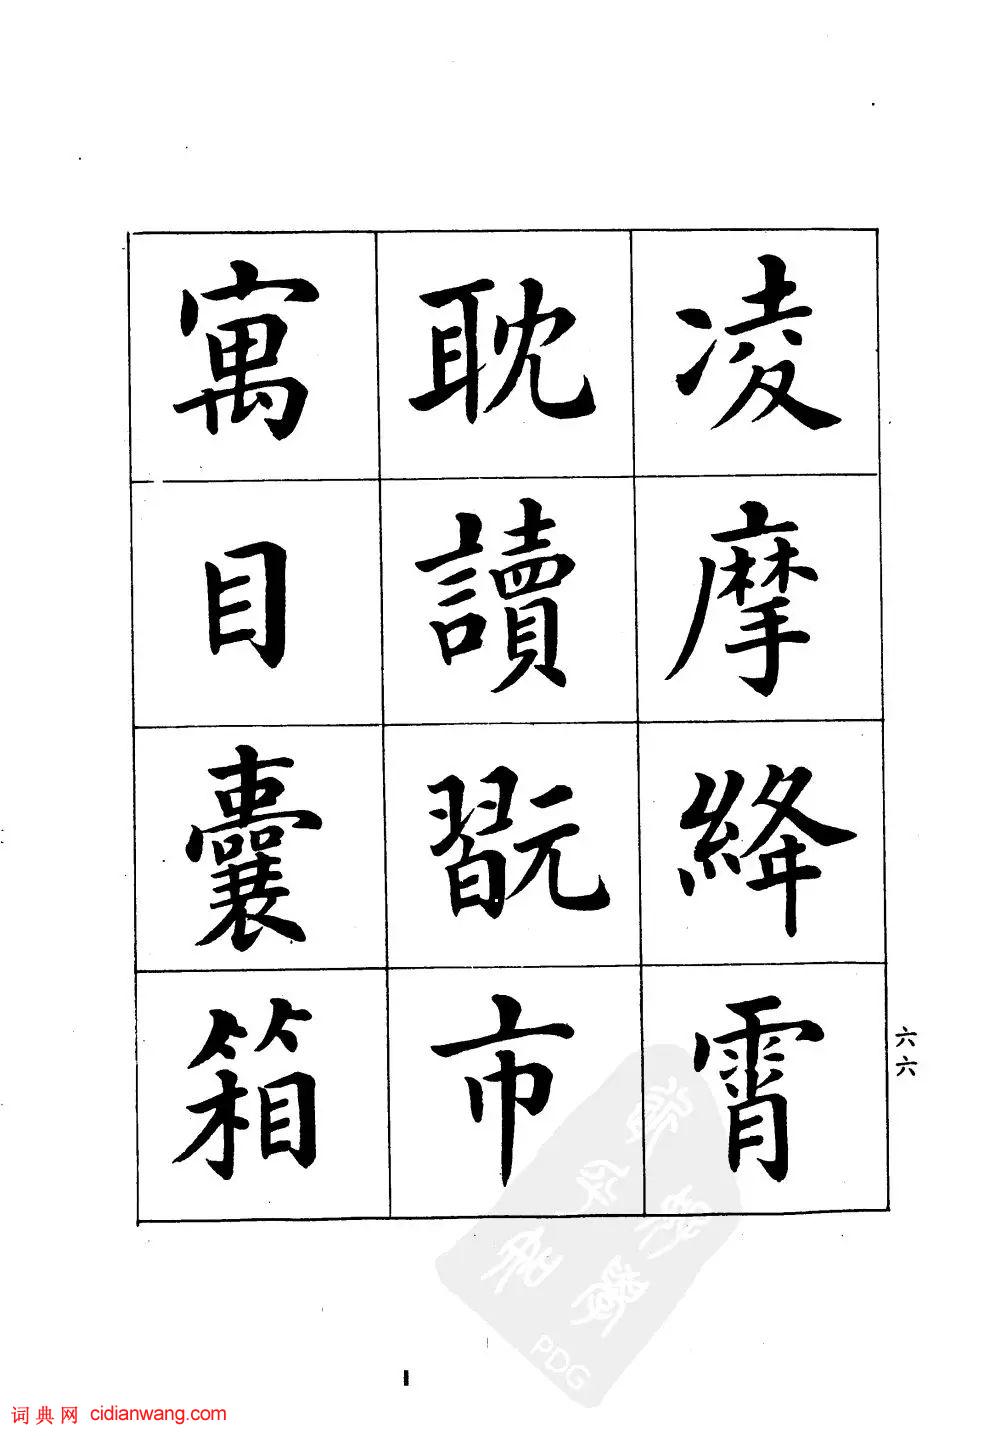 凌摩絳霄
耽讀翫市
寓目囊箱
六六
PDG
词典网 cidianwang.com